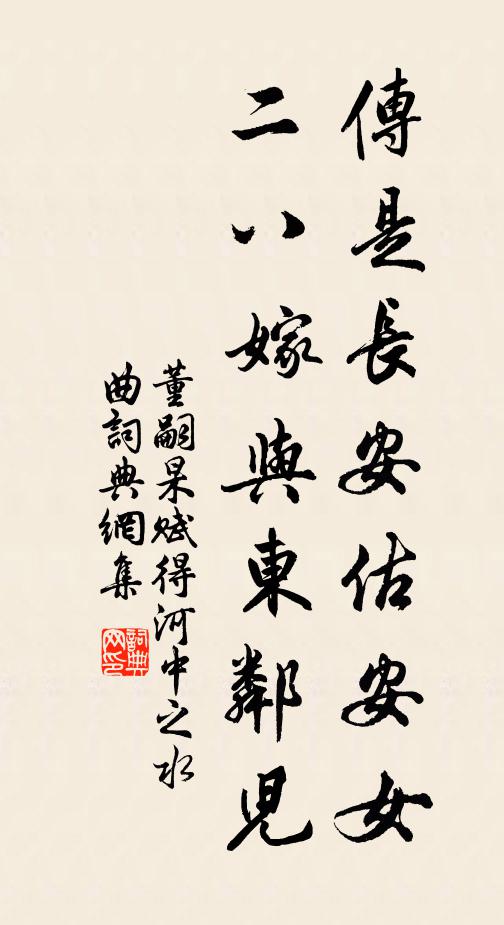 傳是長安估安女
二八嫁與東鄰兒
董嗣杲賦得河中之水
曲詞典網集
詞典网印